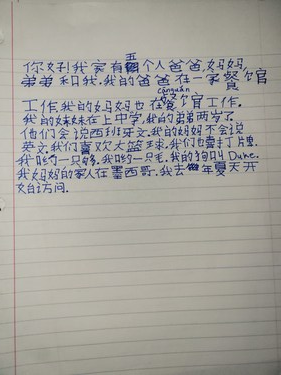 你好!我家有五个人爸爸,妈妈,
弟弟和我.我的爸爸在一家餐馆
cānguǎn
工作.我的妈妈也在餐馆工作.
我的妹妹在上中学,我的弟弟两岁了
他们会说西班牙文.我的妈妈不会说
英文.我们喜欢大篮球.我们也尝打牌.
我哟一只够.我哟一只毛.我的狗叫 Duke.
我妈妈的家人在墨西哥.我去年夏天开
始访问.